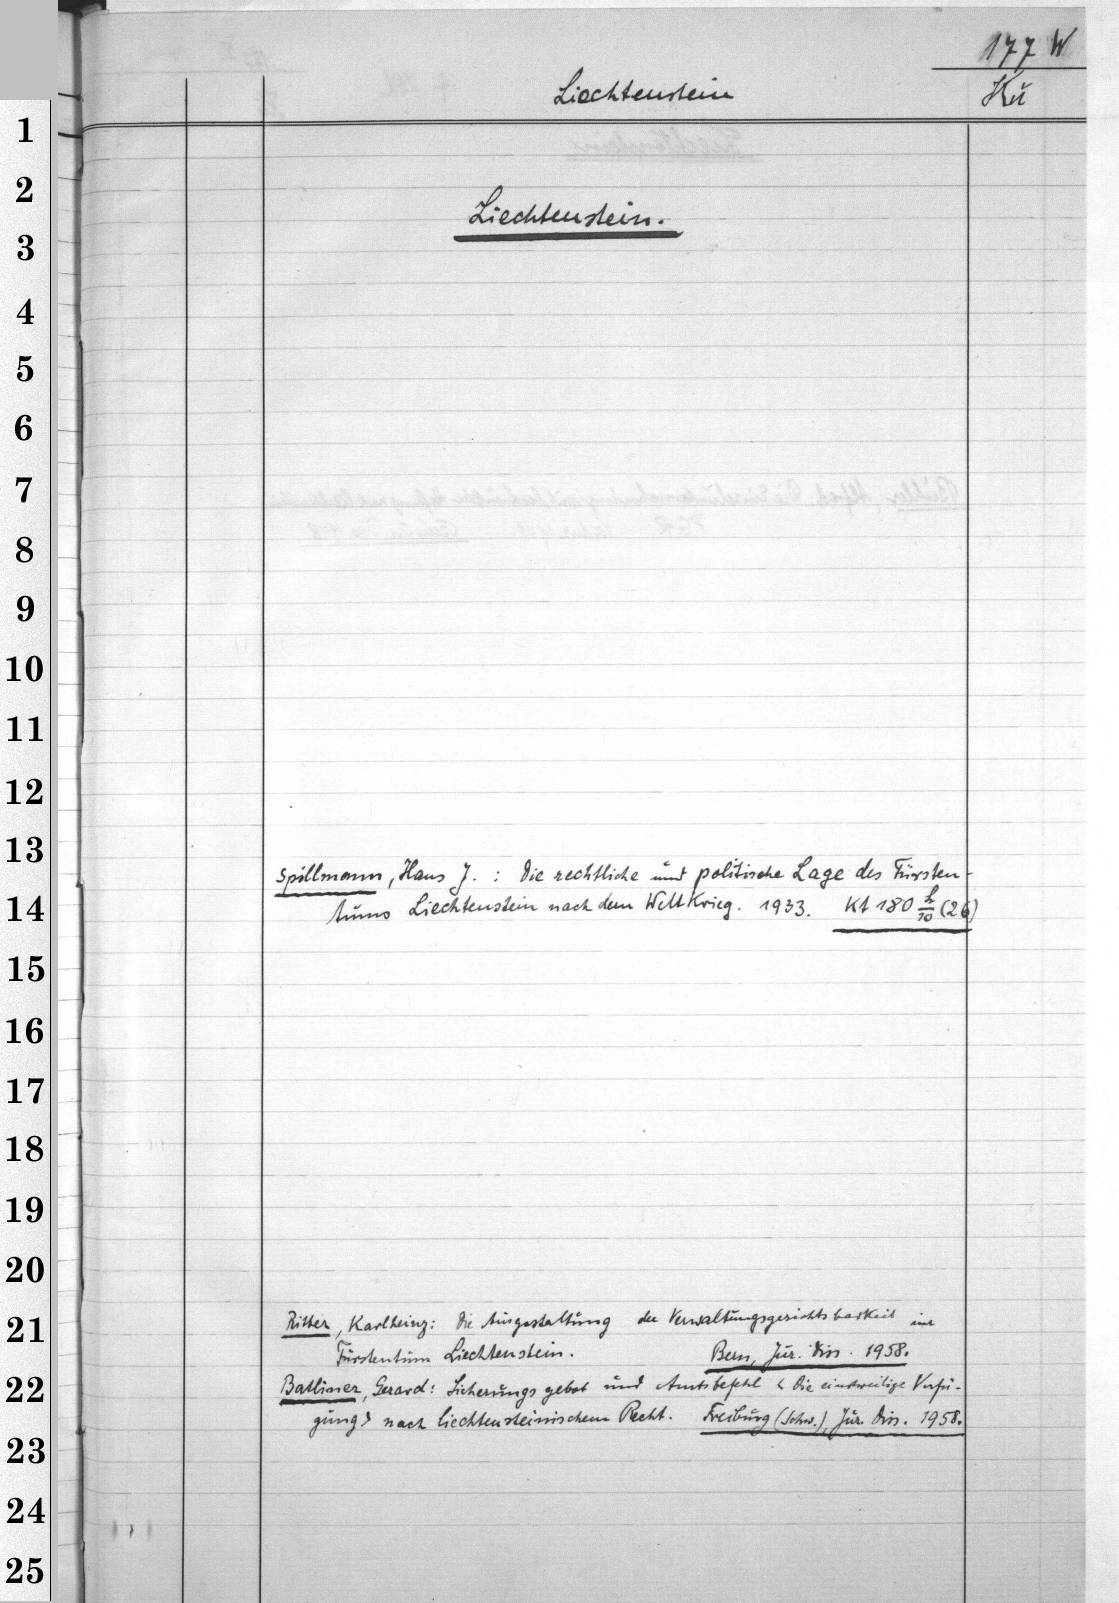 177 W
Liechtenstein
Kü
1
2
Liechtenstein.
3
4
5
6
7
8
9
10
11
12
13
Spillmann, Hans J. : Die rechtliche und politische Lage des Fürsten-
14
tums Liechtenstein nach dem Weltkrieg. 1933. Kt 180 h/10 (26)
15
16
17
18
19
20
21
Ritter, Karlheinz: Die Ausgestaltung der Verwaltungsgerichtsbarkeit im
Fürstentum Liechtenstein. Bern, Jur. Diss. 1958.
22
Batliner, Gerard: Sicherungsgebot und Amtsbefehl < Die einstweilige Verfü-
gung > nach liechtensteinischem Recht. Freiburg (Schw.), Jur. Diss. 1958.
23
24
25